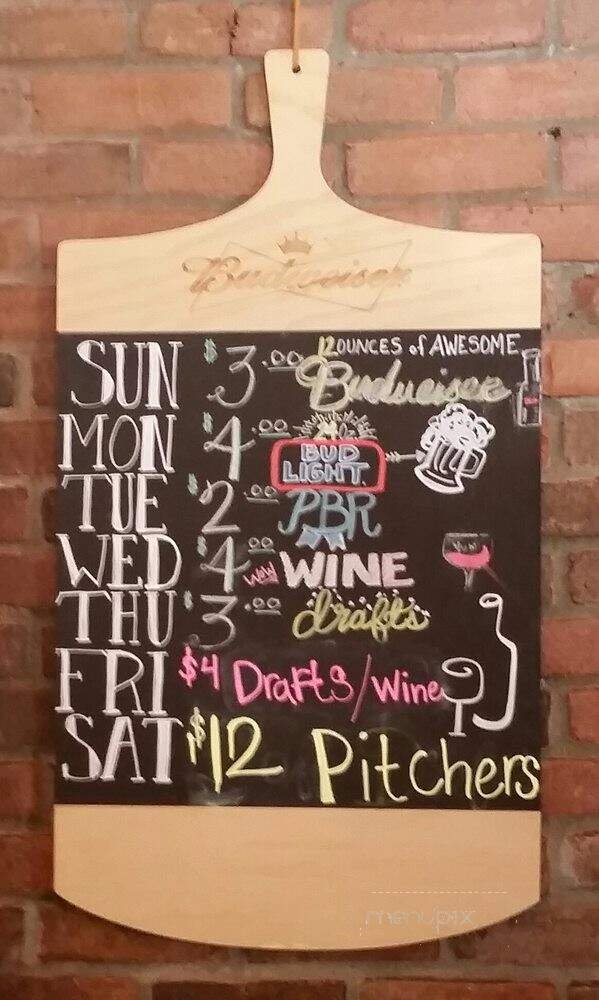 Budweiser
SUN $3.00 12 OUNCES of AWESOME
Budweiser
MON $4.00 BUD LIGHT
TUE $2.00 PBR
WED $4.00 WOW WINE
THU $3.00 drafts
FRI $4 Drafts/Wine
SAT $12 Pitchers
menupix